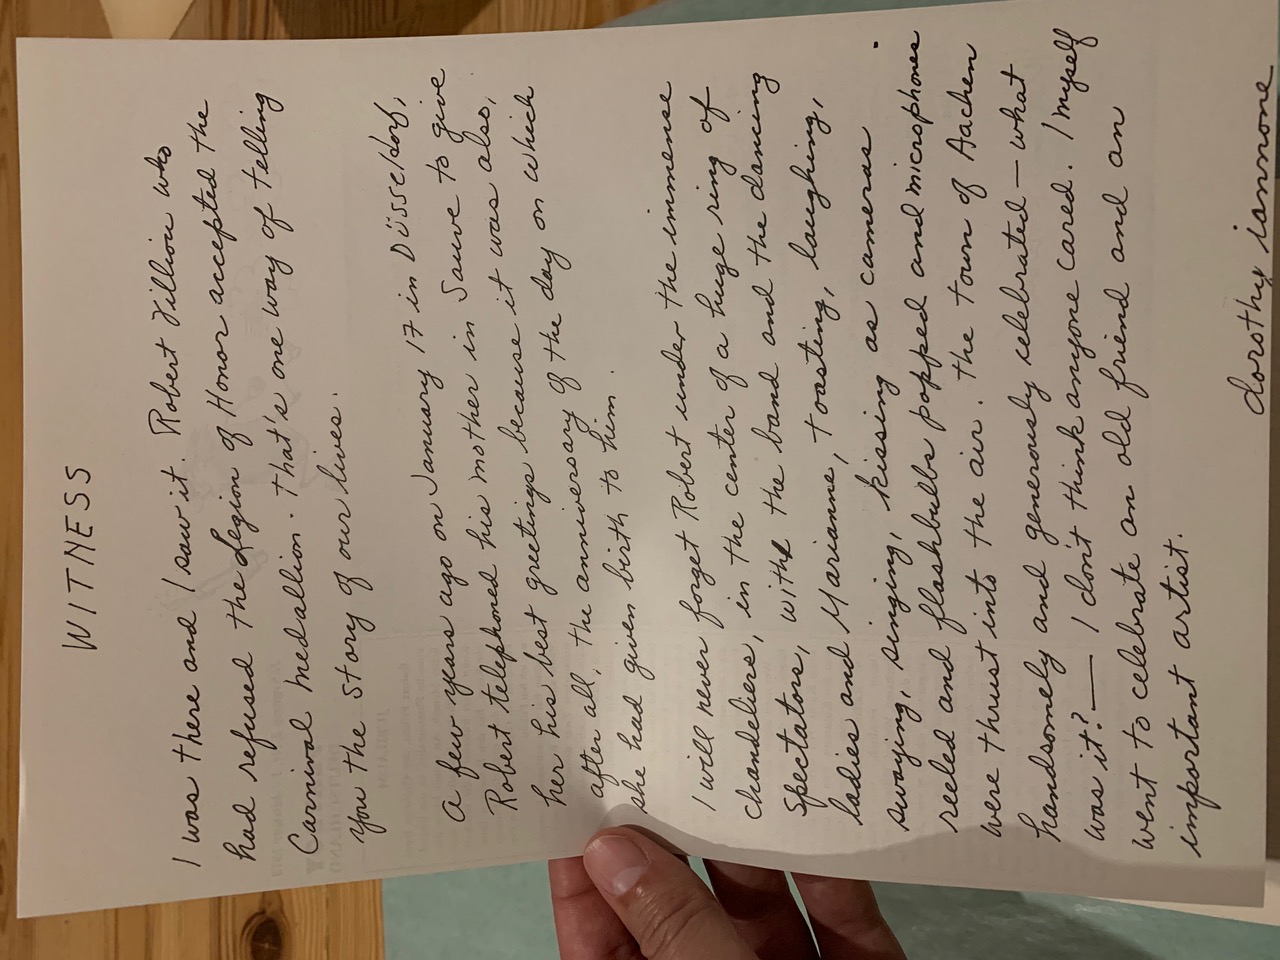 WITNESS
I was there and I saw it. Robert Filliou who
had refused the Legion of Honor accepted the
Carnival Medallion. that's one way of telling
you the story of our lives.
a few years ago on January 17 in Düsseldorf,
Robert telephoned his mother in Sauve to give
her his best greetings because it was also,
after all, the anniversary of the day on which
she had given birth to him.
I will never forget Robert under the immense
chandeliers, in the center of a huge ring of
spectators, with the band and the dancing
ladies and Marianne, toasting, laughing,
swaying, singing, kissing as cameras
reeled and flashbulbs popped and microphones
were thrust into the air. the town of Aachen
handsomely and generously celebrated — what
was it? — I don't think anyone cared. I myself
went to celebrate an old friend and an
important artist.
dorothy iannone